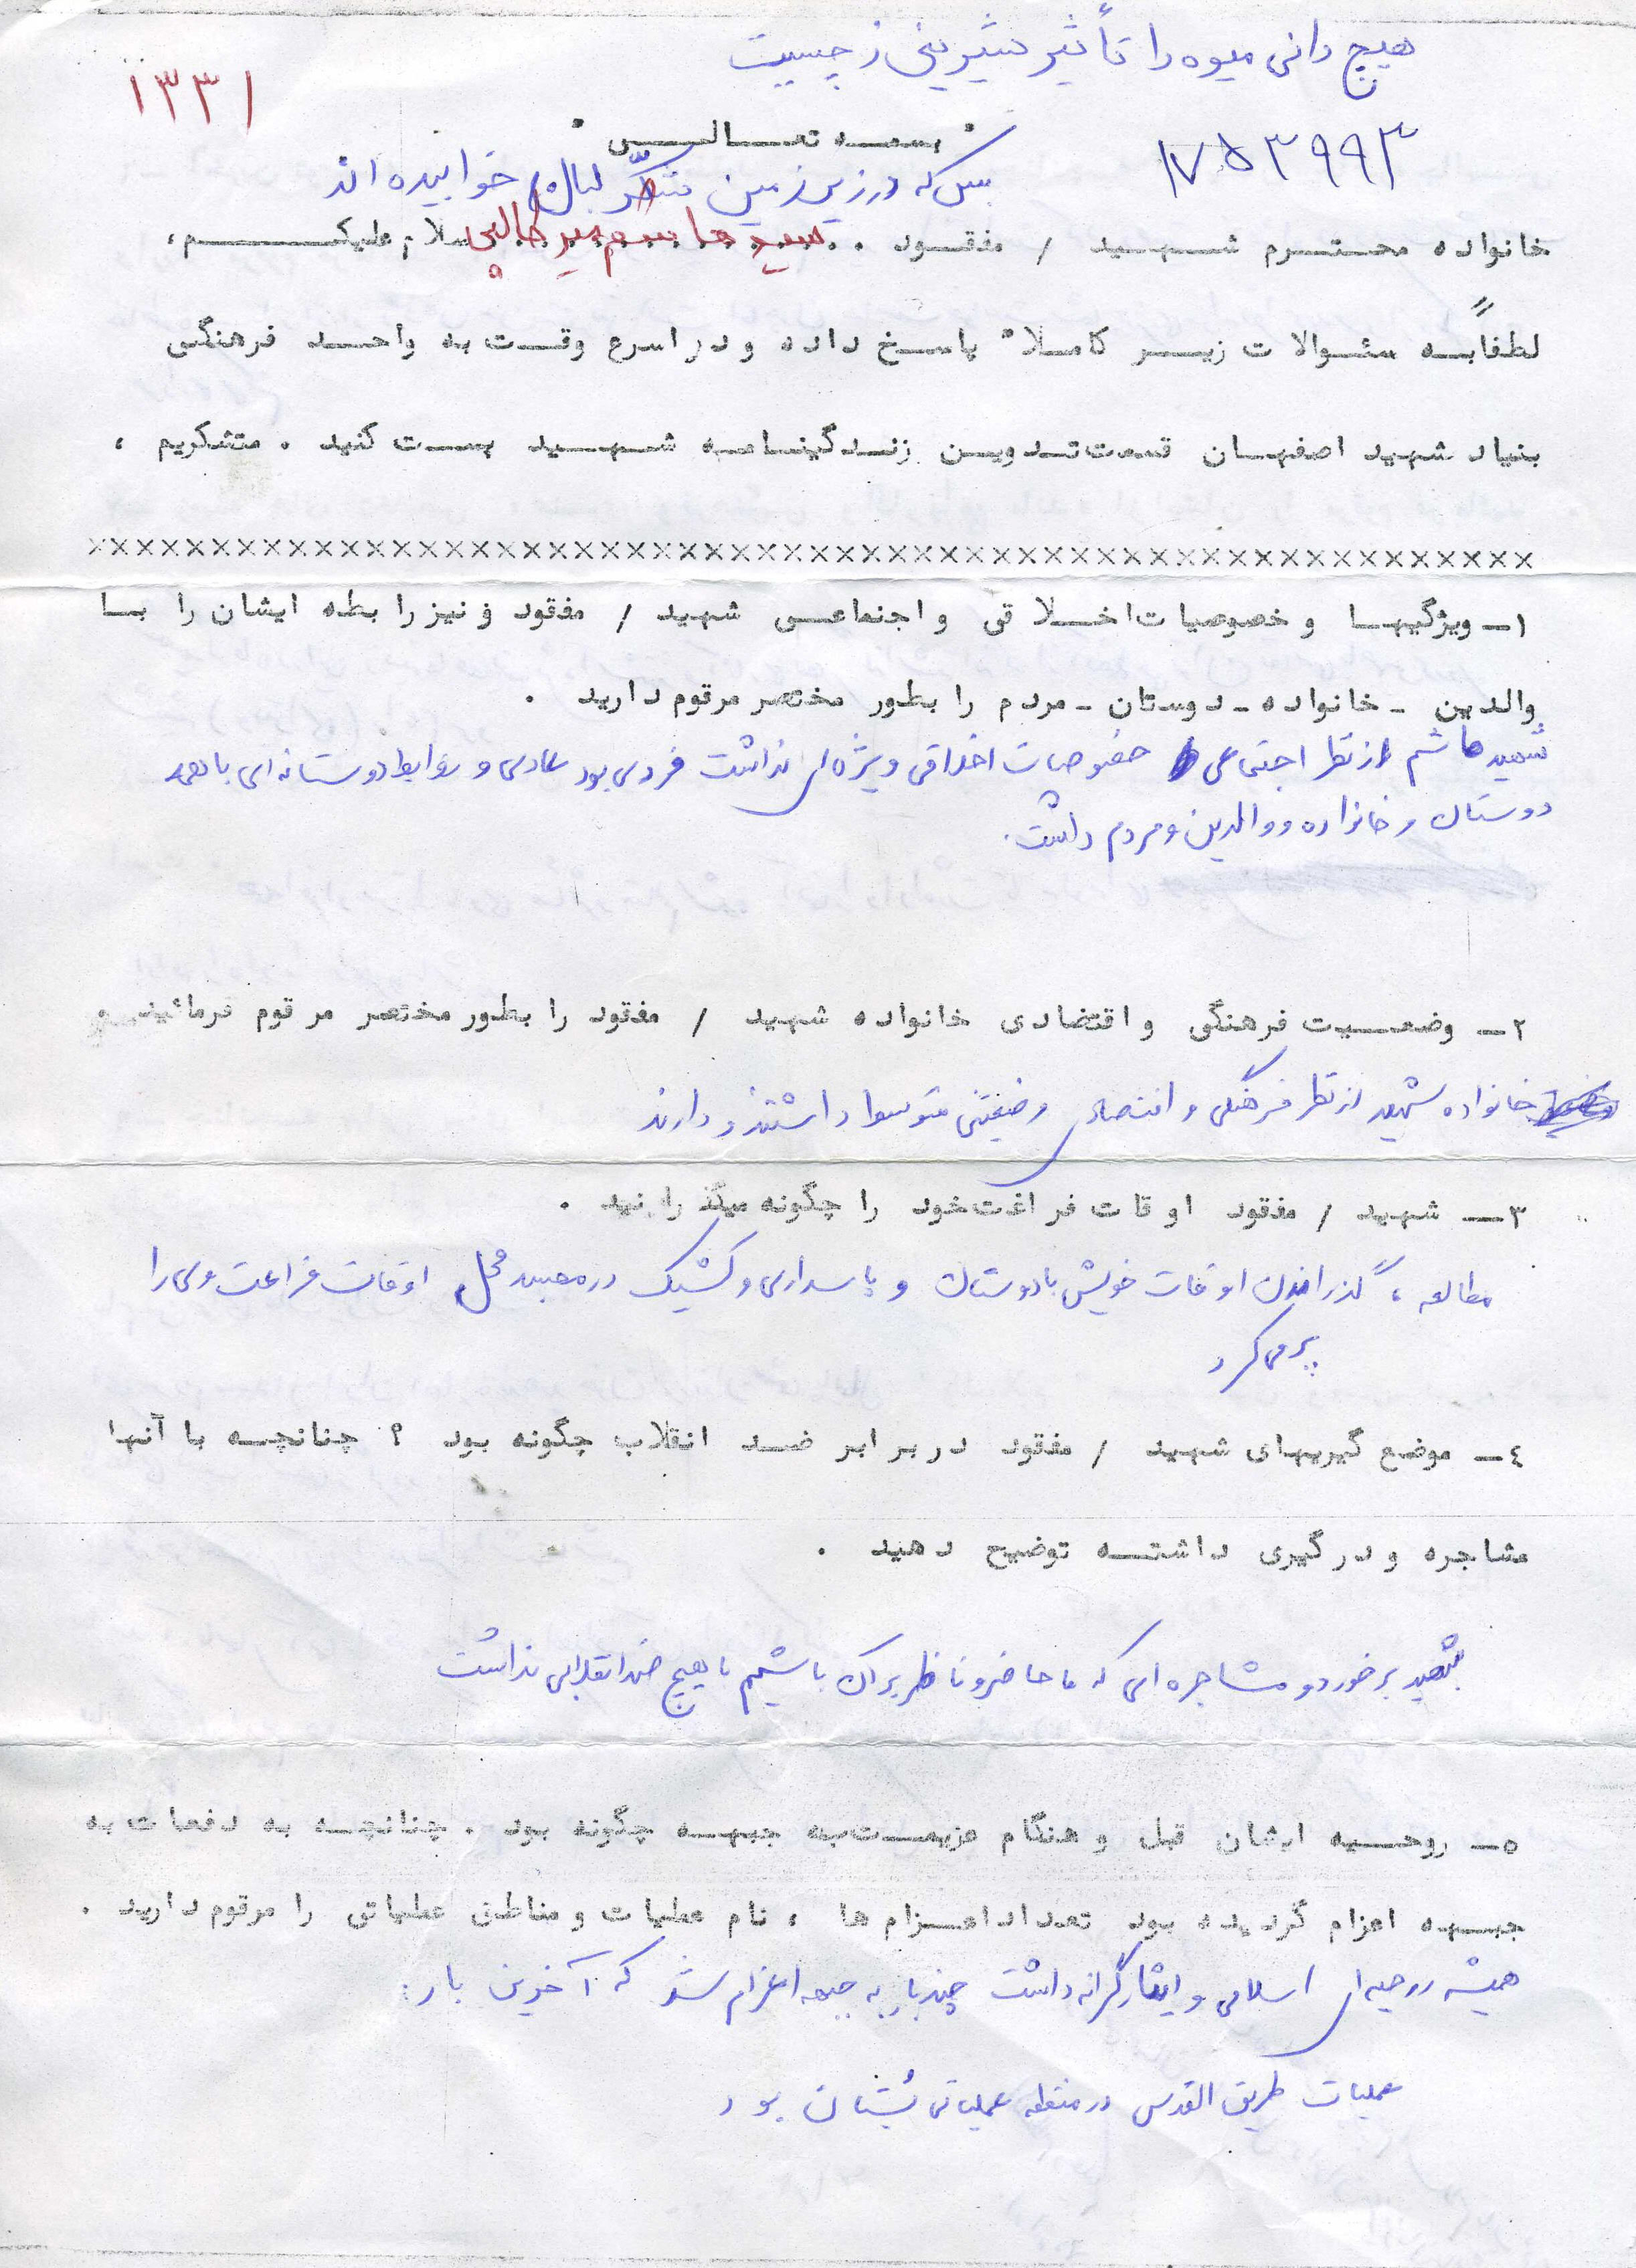 هیچ دانی میوه را تأثیر شیرینی ز چیست
۱۳۳۱
" بسمه تعالی "
۱۷۵۳۹۹۳
بس که در زیر زمین شکّر لبان خوابیده اند
خانواده محترم شهید / مفقود . سید هاشم میر سلام علیکم،
لطفاً به سئوالات زیر کاملا" پاسخ داده و در اسرع وقت به واحد فرهنگی
بنیاد شهید اصفهان قسمت تدوین زندگینامه شهید پست کنید . متشکریم ،
××××××××××××××××××××××××××××××××××××××××××××××××××××××××
۱- ویژگیها و خصوصیات اخلاقی و اجتماعی شهید / مفقود و نیز رابطه ایشان را با
والدین - خانواده - دوستان - مردم را بطور مختصر مرقوم دارید .
شهید هاشم از نظر اجتماعی خصوصیات اخلاقی ویژه ای نداشت فردی بود عادی و روابط دوستانه ای با همه
دوستان و خانواده و والدین و مردم داشت.
۲- وضعیت فرهنگی و اقتصادی خانواده شهید / مفقود را بطور مختصر مرقوم فرمائید
خانواده شهید از نظر فرهنگی و اقتصادی وضیعتی متوسط داشتند و دارند
۳- شهید / مفقود اوقات فراغت خود را چگونه میگذرانید .
مطالعه ، گذراندن اوقات خویش با دوستان و پاسداری و کشیک در مسجد محل اوقات فراغت وی را
پر می کرد
۴- موضع گیریهای شهید / مفقود در برابر ضد انقلاب چگونه بود ؟ چنانچه با آنها
مشاجره و درگیری داشته توضیح دهید .
شهید برخورد و مشاجره ای که ما حاضر و ناظر بر آن باشیم با هیچ ضد انقلابی نداشت
۵- روحیه ایشان قبل و هنگام عزیمت به جبهه چگونه بود . چنانچه به دفعات به
جبهه اعزام گردیده بود تعداد اعزام ها ، نام عملیات و مناطق عملیاتی را مرقوم دارید .
همیشه روحیه ای اسلامی و ایثارگرانه داشت چند بار به جبهه اعزام شد که آخرین بار:
عملیات طریق القدس در منطقه عملیاتی بستان بود